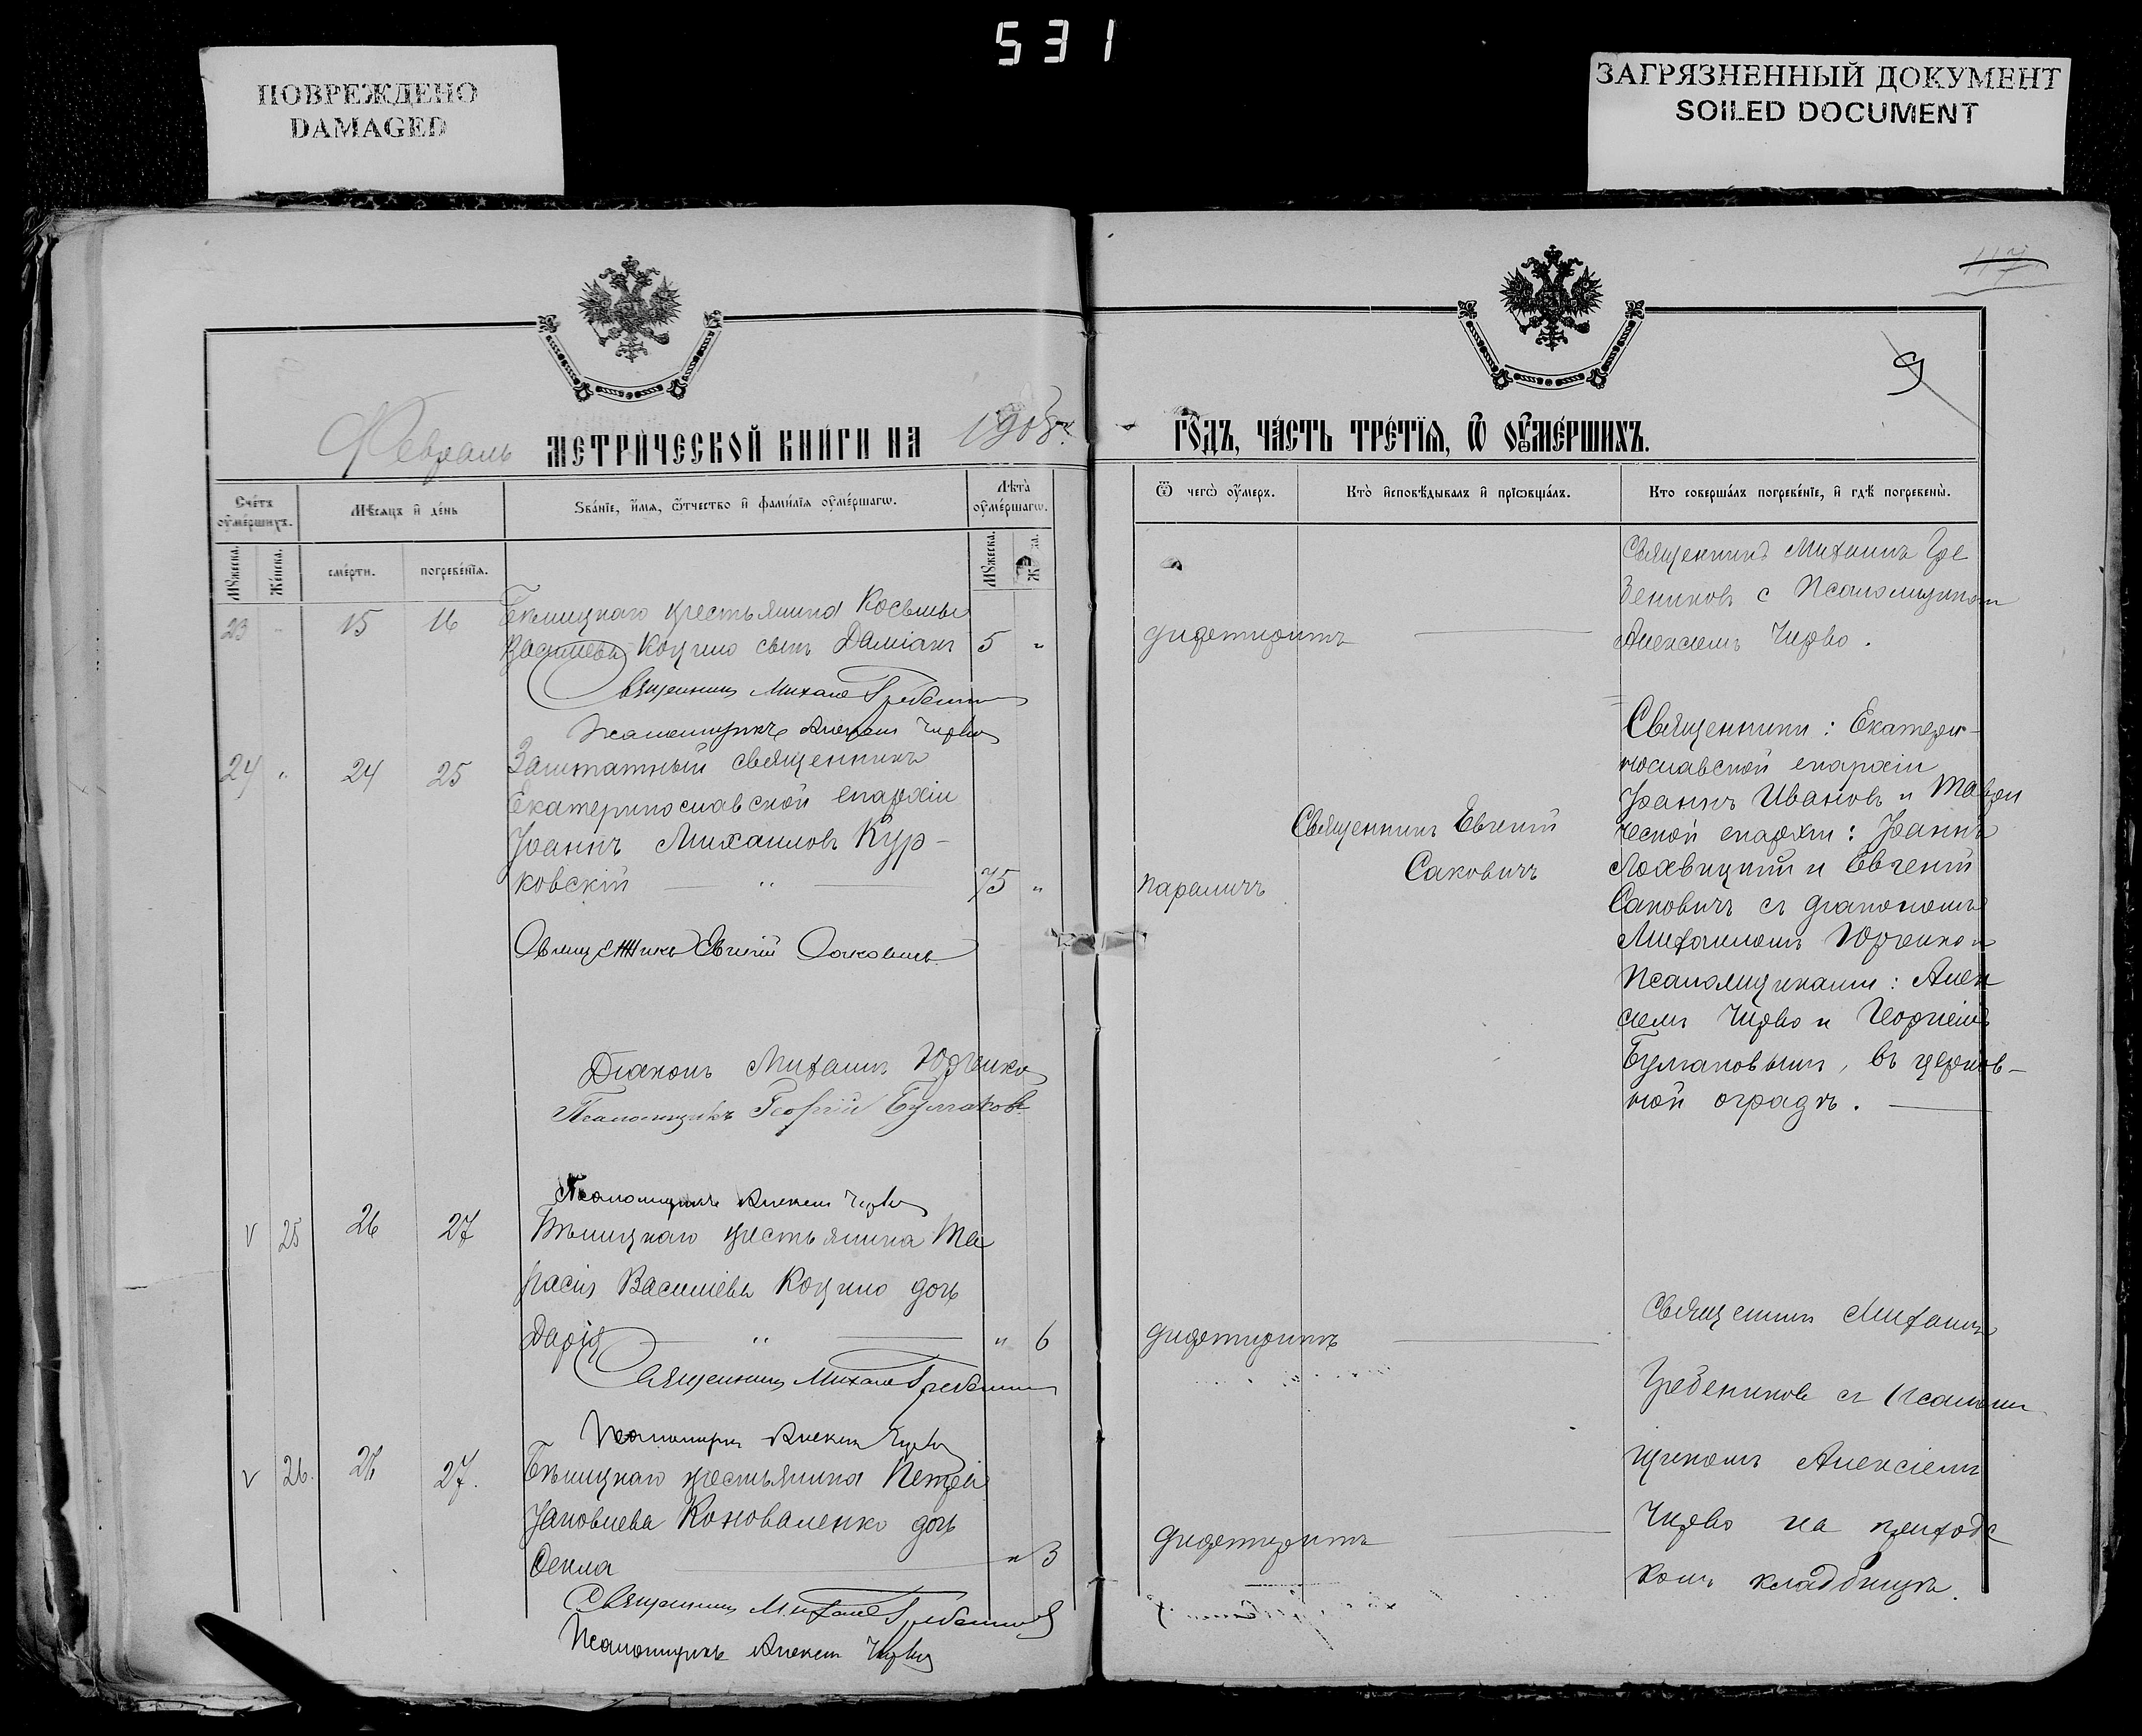 531
ПОВРЕЖДЕНО
DAMAGED
ЗАГРЯЗНЕННЫЙ ДОКУМЕНТ
SOILED DOCUMENT
9
Февраль МЕТРИЧЕСКОЙ КНИГИ НА 1908 г.
ГОДЪ, ЧАСТЬ ТРЕТІЯ, Ѿ ОУМЕРШИХЪ.
Счетъ оумершихъ.
Мѣсяцъ и день
Званіе, имя, ѿчество и фамилія оумершагѡ.
Лѣта оумершагѡ.
Мꙋжеска.
Женска.
смерти.
погребенїя.
Мꙋжеска.
Ѿ чегѡ оумеръ.
Кто исповѣдывалъ и прїѡбщалъ.
Кто совершалъ погребенїе, и гдѣ погребены.
23 15 16 Бѣлицкаго крестьянина Косьмы
Василіева Коцило сынъ Даміанъ 5 "
Священникъ Михаилъ Гребениковъ
Псаломщикъ Алексѣй Чирво
дифтеритъ
Священникъ Михаилъ Гре
бениковъ с Псаломщикомъ
Алексіемъ Чирво.
24 " 24 25 Заштатный священникъ
Екатеринославской епархіи
Іоаннъ Михаиловъ Кур-
ковскій " 75 "
Священникъ Евгеній Саковичъ
Діаконъ Михаилъ Юрченко
Псаломщикъ Георгій Булгаковъ
Псаломщикъ Алексѣй Чирво
параличъ
Священникъ Евгеній
Саковичъ
Священники: Екатери-
нославской епархіи
Іоаннъ Ивановъ и Таври
ческой епархіи: Іоаннъ
Лохвицкій и Евгеній
Саковичъ съ діакономъ
Михаиломъ Юрченко и
псаломщиками: Алек
сіемъ Чирво и Георгіемъ
Булгаковымъ, въ церков-
ной оградѣ.
V 25 26 27 Бѣлицкаго крестьянина Та
расія Василіева Коцило дочь
Дарія " " 6
Священникъ Михаилъ Гребениковъ
Псаломщикъ Алексѣй Чирво
дифтеритъ
Священникъ Михаилъ
Гребениковъ съ псалом
щикомъ Алексіемъ
Чирво на приходс
комъ кладбищѣ.
V 26. 26 27. Бѣлицкаго крестьянина Петра
Іаковлева Коноваленко дочь
Ѳекла " 3
Священникъ Михаилъ Гребениковъ
Псаломщикъ Алексѣй Чирво
дифтеритъ